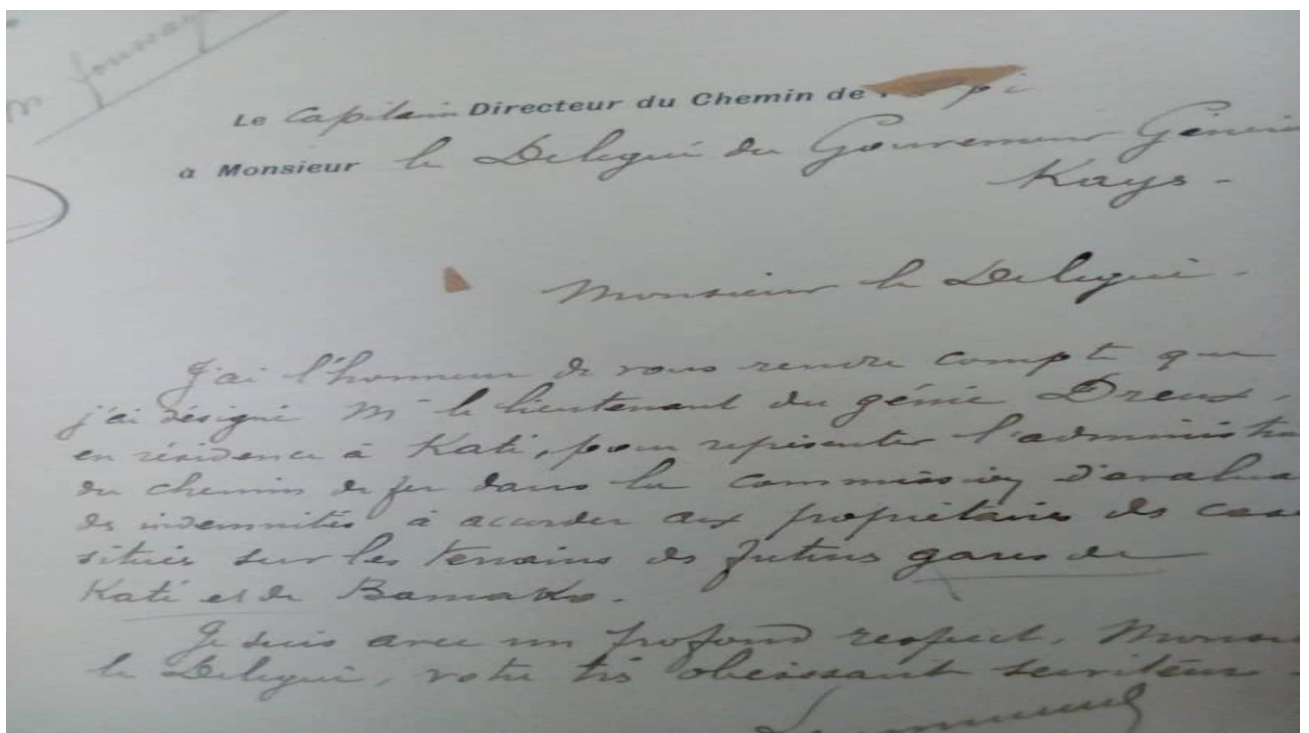 Le Capitaine Directeur du Chemin de
à Monsieur le Délégué du Gouverneur Généra
Kays -
Monsieur le Délégué.
J'ai l'honneur de vous rendre compte que
j'ai désigné Mr le lieutenant du génie Dreux,
en résidence à Kati, pour représenter l'administra
du chemin de fer dans la commission d'évalua
des indemnités à accorder aux propriétaires des case
situées sur les terrains des futures gares de
Kati et de Bamako.
Je suis avec un profond respect, Monsieu
le Délégué, votre très obéissant serviteur.